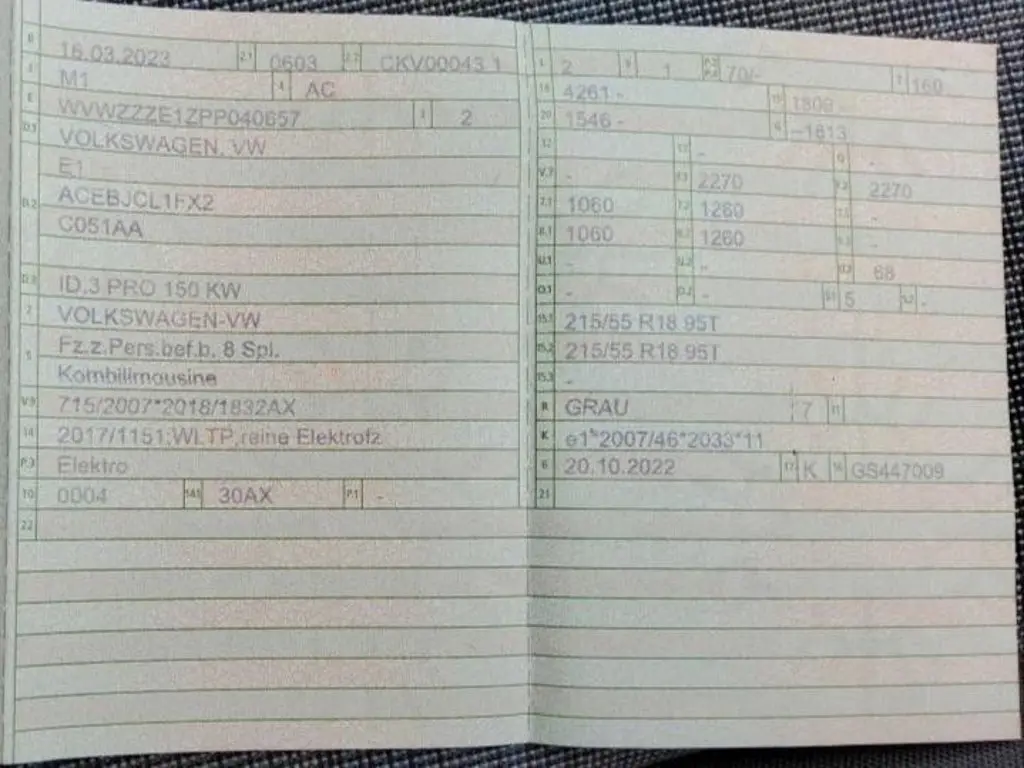 B 16.03.2023 2.1 0603 2.2 CKV00043 1
J M1 4 AC
E WVWZZZE1ZPP040657 3 2
D.1 VOLKSWAGEN, VW
E1
D.2 ACEBJCL1FX2
C051AA
D.3 ID.3 PRO 150 KW
2 VOLKSWAGEN-VW
5 Fz.z.Pers.bef.b. 8 Spl.
Kombilimousine
V.9 715/2007*2018/1832AX
14 2017/1151;WLTP,reine Elektrofz
P.3 Elektro
10 0004 14.1 30AX P.1 -
22
L 2 9 1 P.2 P.4 70/- T 160
18 4261 - 19 1809 -
20 1546 - G -1813
12 - 13 - Q -
V.7 - F.1 2270 F.2 2270
7.1 1060 7.2 1260 7.3 -
8.1 1060 8.2 1260 8.3 -
U.1 - U.2 - U.3 68
O.1 - O.2 - S.1 5 S.2 -
15.1 215/55 R18 95T
15.2 215/55 R18 95T
15.3 -
R GRAU 7 11
K e1*2007/46*2033*11
6 20.10.2022 17 K 16 GS447009
21